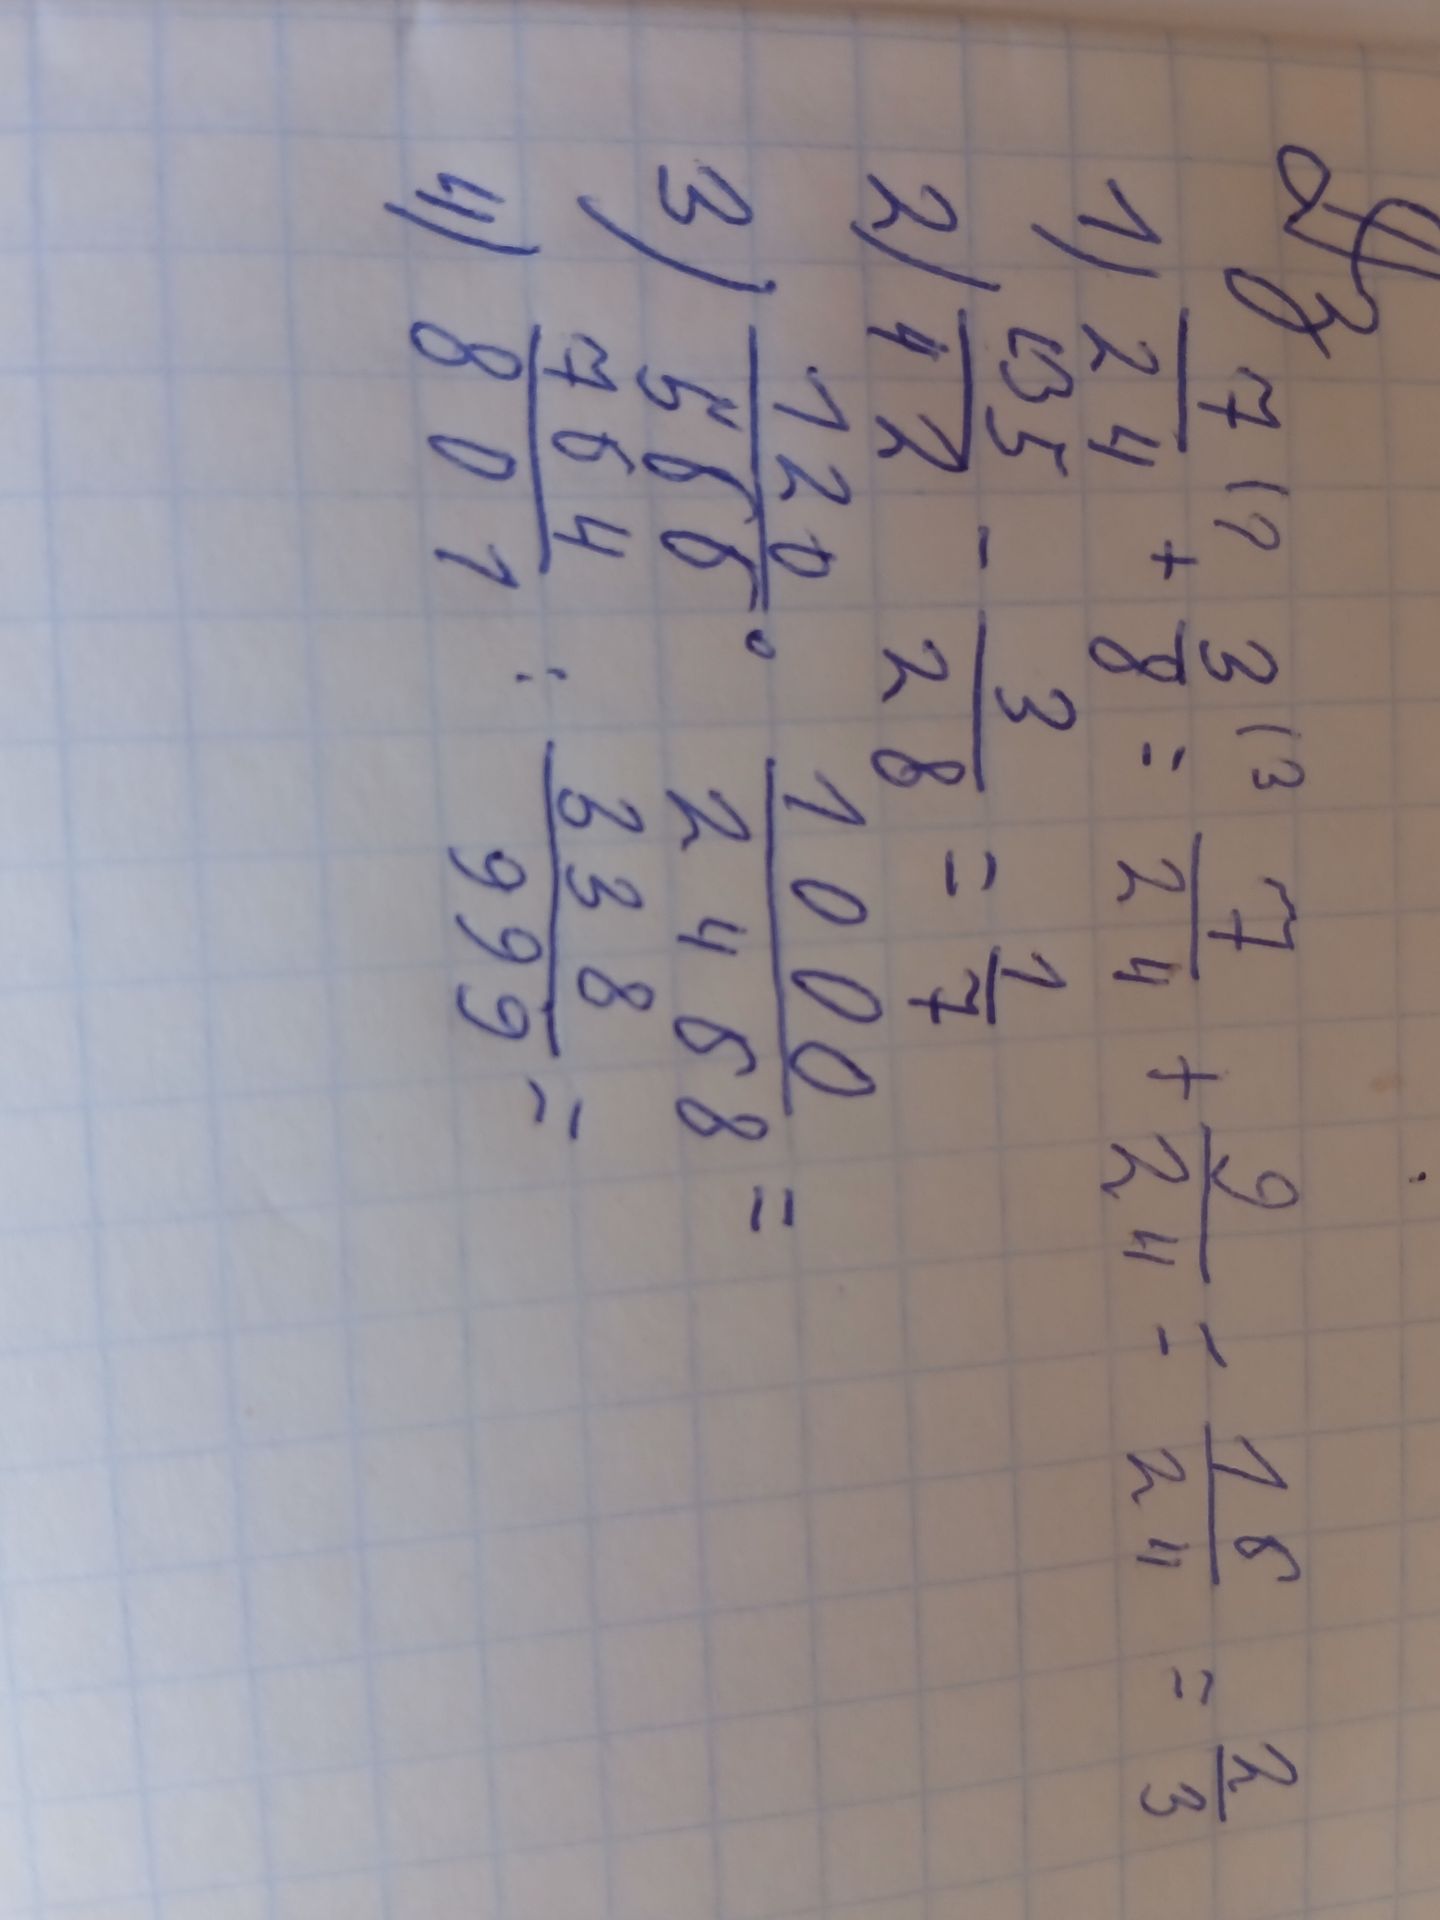 Дз
1) 7/24 + 3/8 (3 = 7/24 + 9/24 = 16/24 = 2/3
2) 5/42 - 3/28 = 1/7
3) 120/566 · 1000/2468 =
4) 764/801 : 338/999 =